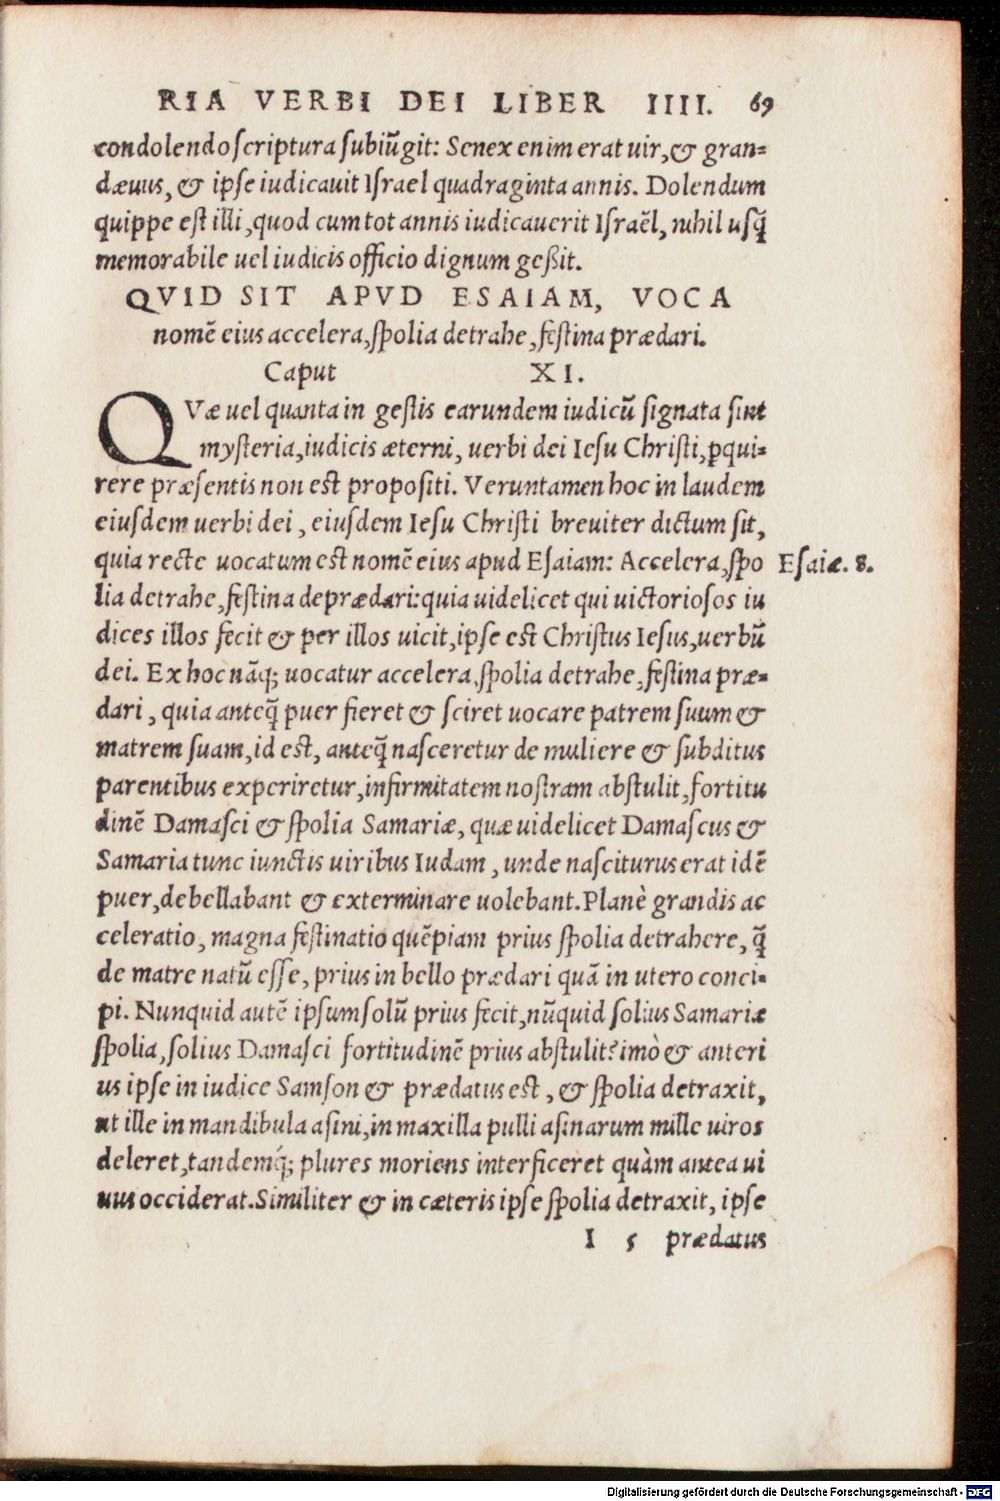 RIA VERBI DEI LIBER IIII. 69
condolendo scriptura subiũgit: Senex enim erat uir, & gran=
dæuus, & ipse iudicauit Israel quadraginta annis. Dolendum
quippe est illi, quod cum tot annis iudicauerit Israẽl, nihil usq̃
memorabile uel iudicis officio dignum geßit.
QVID SIT APVD ESAIAM, VOCA
nomẽ eius accelera, spolia detrahe, festina prædari.
Caput XI.
QVæ uel quanta in gestis earundem iudicũ signata sint
mysteria, iudicis æterni, uerbi dei Iesu Christi, ꝑqui=
rere præsentis non est propositi. Veruntamen hoc in laudem
eiusdem uerbi dei, eiusdem Iesu Christi breuiter dictum sit,
quia recte uocatum est nomẽ eius apud Esaiam: Accelera, spo
Esaiæ. 8.
lia detrahe, festina deprædari: quia uidelicet qui uictoriosos iu
dices illos fecit & per illos uicit, ipse est Christus Iesus, uerbũ
dei. Ex hoc nãq; uocatur accelera, spolia detrahe, festina præ=
dari, quia anteq̃ puer fieret & sciret uocare patrem suum &
matrem suam, id est, anteq̃ nasceretur de muliere & subditus
parentibus experiretur, infirmitatem nostram abstulit, fortitu
dinẽ Damasci & spolia Samariæ, quæ uidelicet Damascus &
Samaria tunc iunctis uiribus Iudam, unde nasciturus erat idẽ
puer, debellabant & exterminare uolebant. Planè grandis ac
celeratio, magna festinatio quẽpiam prius spolia detrahere, q̃
de matre natũ esse, prius in bello prædari quã in utero conci=
pi. Nunquid autẽ ipsum solũ prius fecit, nũquid solius Samariæ
spolia, solius Damasci fortitudinẽ prius abstulit? imò & anteri
us ipse in iudice Samson & prædatus est, & spolia detraxit,
ut ille in mandibula asini, in maxilla pulli asinarum mille uiros
deleret, tandemq́; plures moriens interficeret quàm antea ui
uus occiderat. Similiter & in cæteris ipse spolia detraxit, ipse
I 5 prædatus
Digitalisierung gefördert durch die Deutsche Forschungsgemeinschaft - DFG